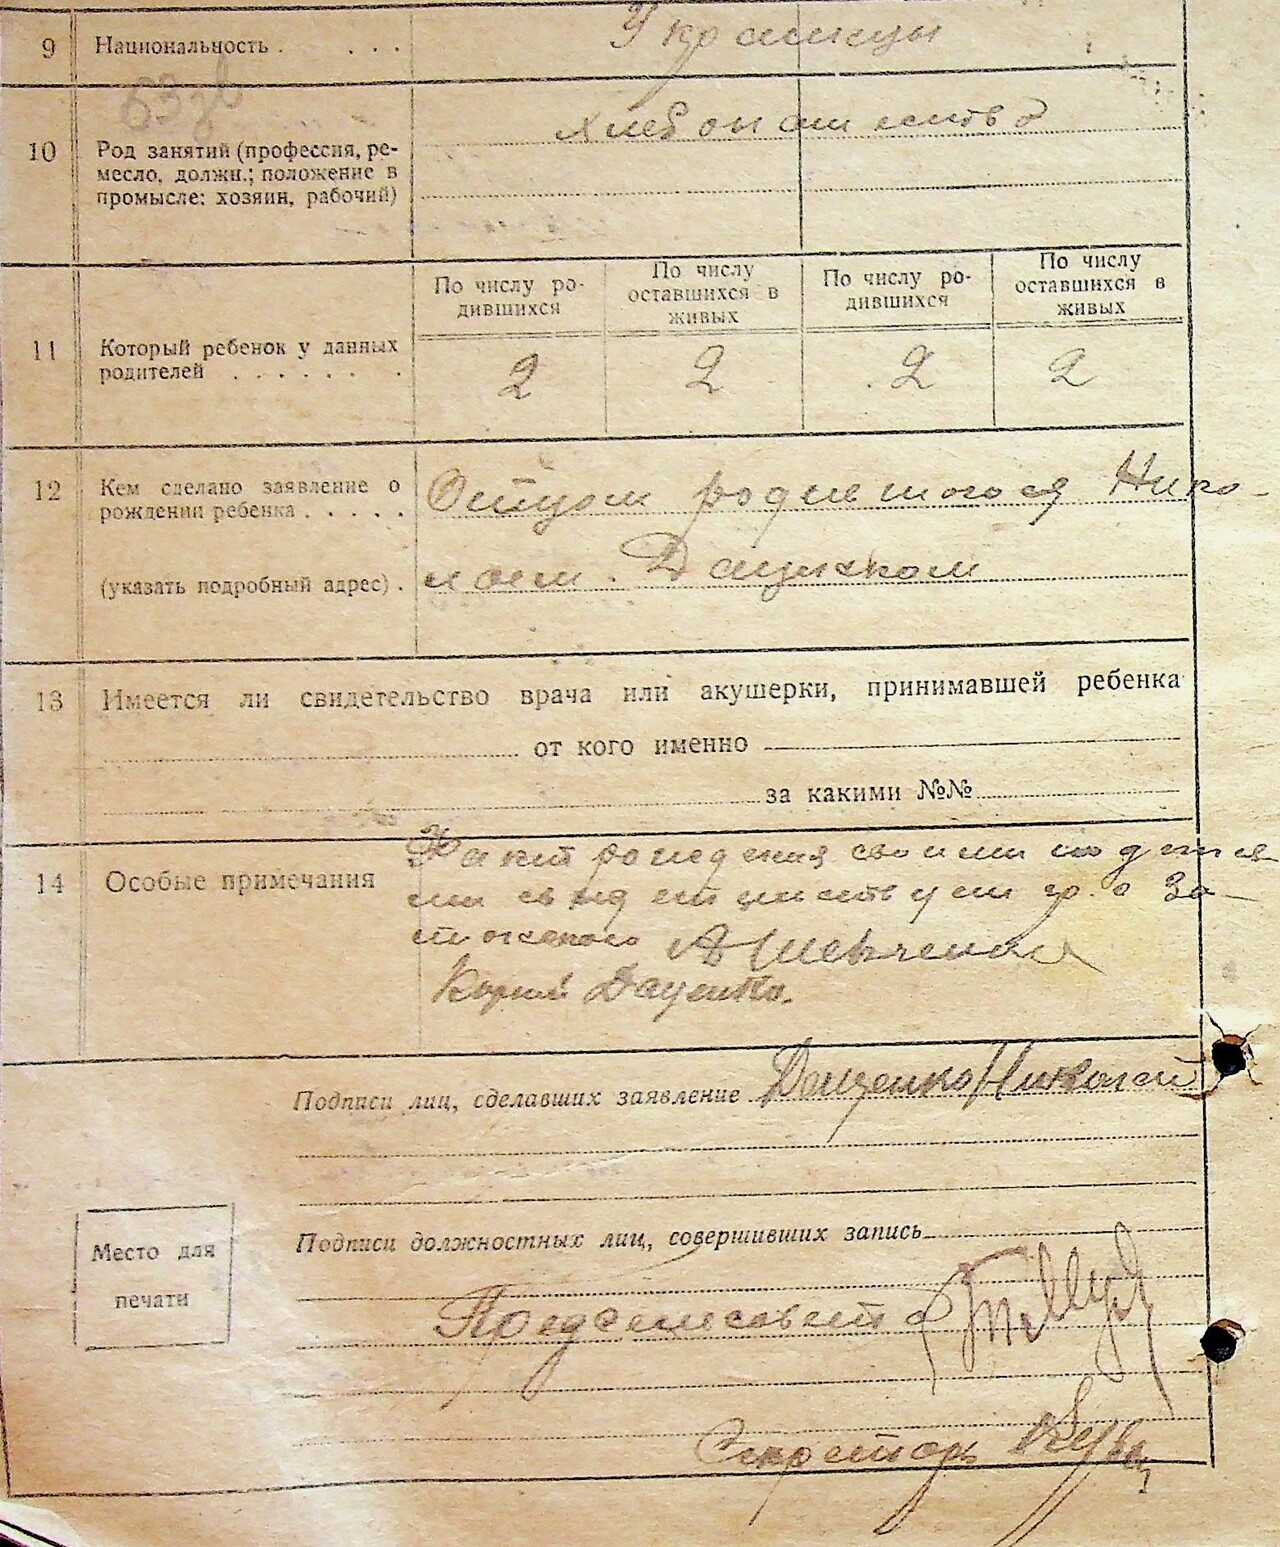 9 Национальность . . . . Украинцы
10 Род занятий (профессия, ре-
месло, должн.; положение в
промысле: хозяин, рабочий)
хлебопашество
По числу ро-
дившихся
По числу
оставшихся в
живых
По числу ро-
дившихся
По числу
оставшихся в
живых
11 Который ребенок у данных
родителей . . . . . . .
2 2 2 2
12 Кем сделано заявление о
рождении ребенка . . . . .
Отцом родившогося Нико-
(указать подробный адрес) . лаем. Даценком
13 Имеется ли свидетельство врача или акушерки, принимавшей ребенка
от кого именно
за какими №№
14 Особые примечания
Факт рождения своими подпися-
ми свидетельствуем гр. о За-
А Шевченко
Даценко.
Подписи лиц, сделавших заявление Даценко Николай
Подписи должностных лиц, совершивших запись
Место для
печати
Предсельсовета
Секретарь